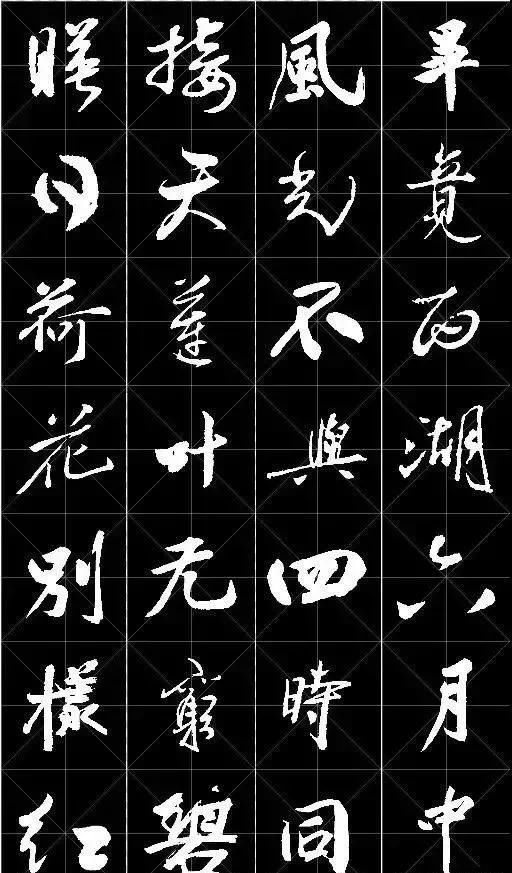 畢竟西湖六月中
風光不與四時同
接天蓮叶无窮碧
暎日荷花別樣红